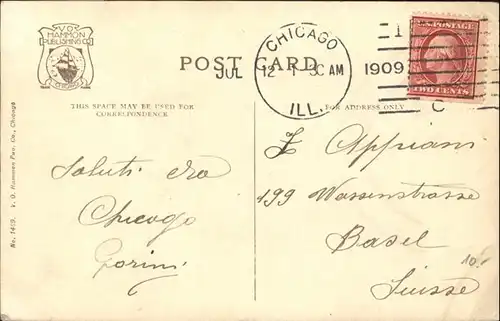 V.O.
HAMMON
PUBLISHING CO.
CHICAGO
POST CARD
JUL 12 1 30 AM 1909
CHICAGO
ILL.
1
C
U.S. POSTAGE
TWO CENTS
THIS SPACE MAY BE USED FOR
CORRESPONDENCE
FOR ADDRESS ONLY
No. 1419. V. O. Hammon Pub. Co., Chicago
Saluti da
Chicago
Gorini
Appiani
199 Wasenstrasse
Basel
Suisse
10.